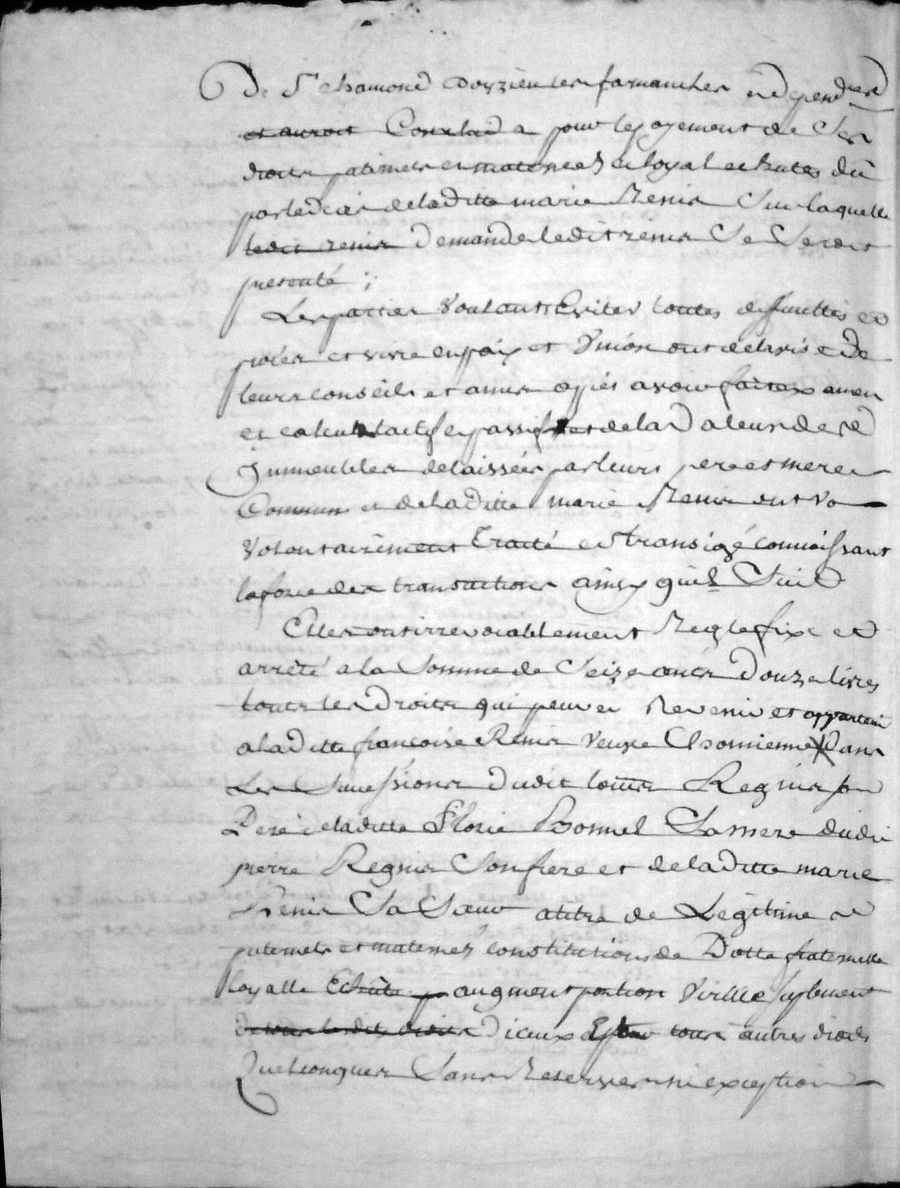 De St Chamond Doizieu les farnanches et dependances
et auroit Conclud a pour le payement de Ses
droits paternels et maternels et loyal echutes du
par le deces de laditte marie Renis Sur laquelle
ledit renis demande ledit renis Se Seroit
presenté ;
Les parties Voulant Eviter toutes difficultés et
procès et vivre en paix et Union ont de l'avis de
leurs conseils et amis après avoir fait examen
et calcul l'actif et passif et de la Valeur des
Immeubles delaissés par leurs pere et mere
Communs et de laditte marie Renis ont vo
Volontairement traité et transigé connoissant
la force des transactions ainsy qu'il Suit
Elles ont irrevocablement Regle fixe et
arrêté a la Somme de Seize cents Douze livres
touts les Droits qui peuvent Revenir et appartenir
a laditte françoise Renis veuve Chomienne Dans
Les Successions dudit Regnis son
Pere de laditte Florie Bonnel Sa mere dudit
pierre Regnis Son frere et de laditte marie
Renis Sa Sœur a titre de Légitime
paternels et maternels constitutions de Dotte fraternelle
loyalle Echute augment portion Virille Suplement
de tous lesdits droits d'iceux Et tous autres droits
Quelconques Sans Reserves ni exception